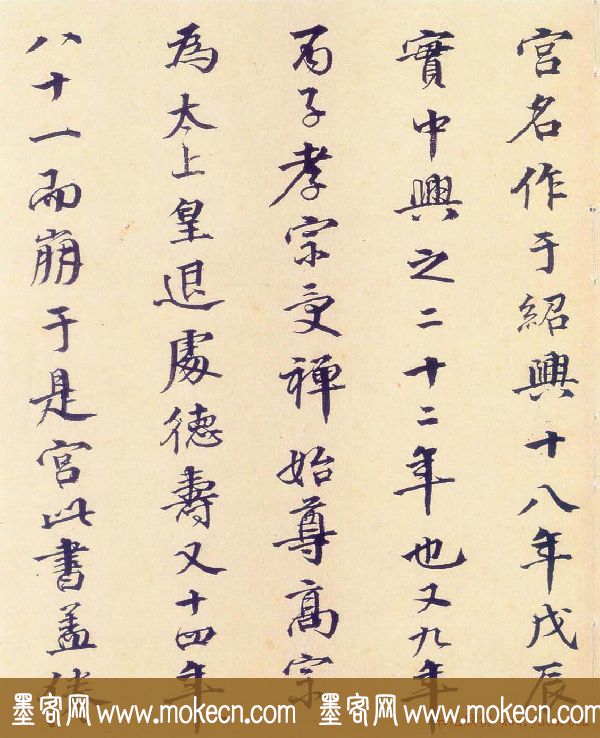 宮名作于紹興十八年戊辰
實中興之二十二年也又九年
丙子孝宗受禪始尊高宗
為太上皇退處德壽又十四年
八十一而崩于是宮此書蓋
墨客网 www.mokecn.com 墨客网 www.mokecn.com